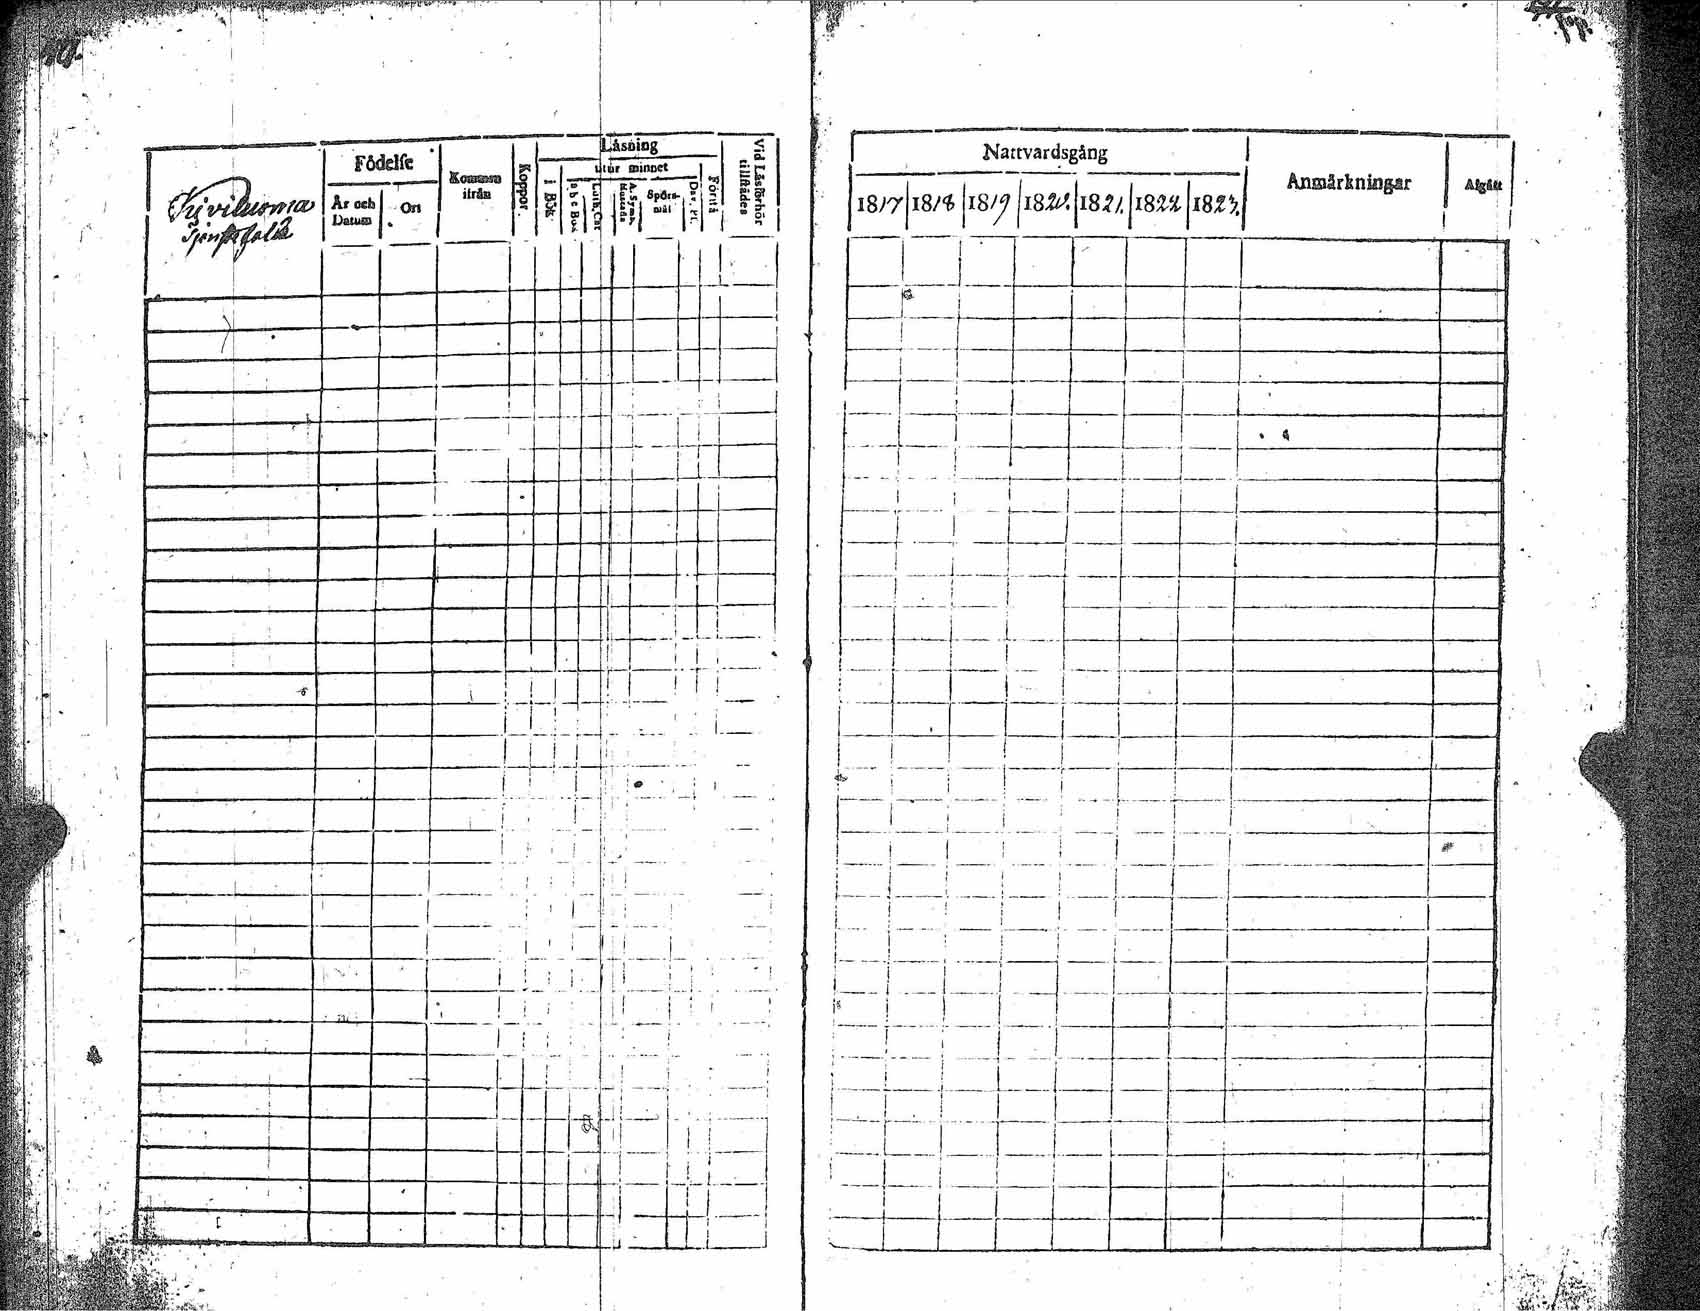 Kiviluoma
Tjenstefolk
Födelse
År och
Datum
Ort
Kommen
ifrån
Koppor.
Läsning
i Bok.
utur minnet
a b c Bok
Luth. Cat
A. Symb.
Hustafla
Spörs-
mål
Dav. Ps.
Förstå
Vid Läsförhör
tillstädes
Nattvardsgång
1817 1818 1819 1820. 1821. 1822 1823.
Anmärkningar
Afgått